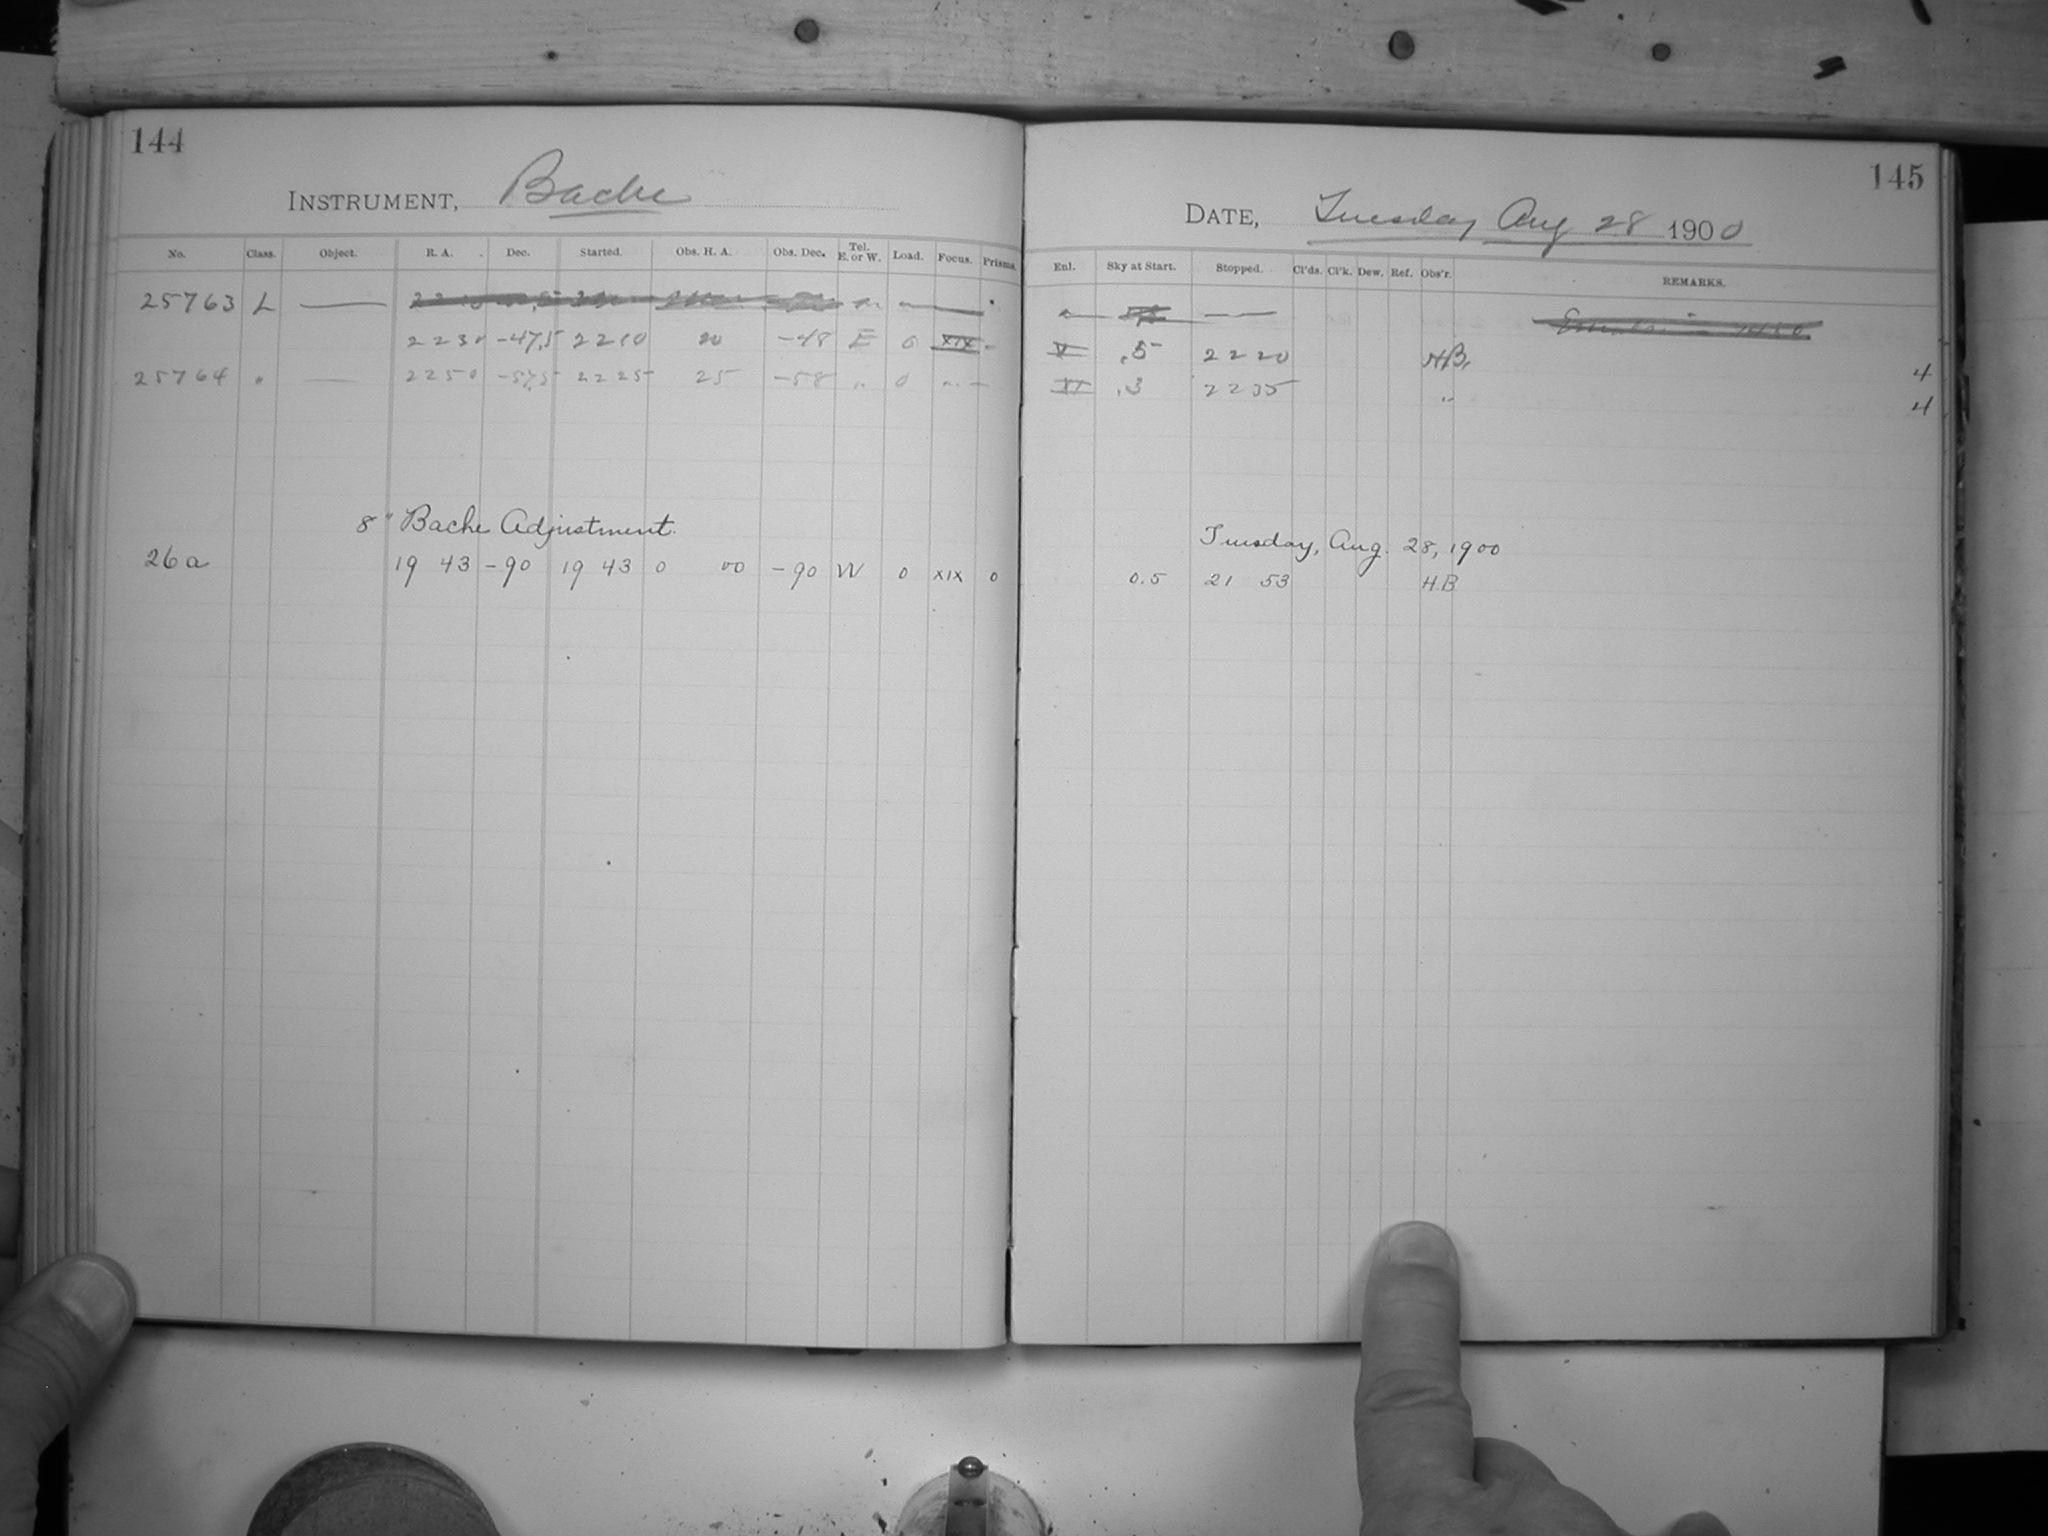 144
INSTRUMENT, Bache
No. Class. Object. R. A. Dec. Started. Obs. H. A. Obs. Dec. Tel. E. or W. Load. Focus. Prisms.
25763 L —
2230 -47.5 2210 20 -48 E 0 XIX -
25764 " — 2250 -57.5 2225 25 -58 " 0 " -
8" Bache Adjustment.
26a 19 43 -90 19 43 0 00 -90 W 0 XIX 0
145
DATE, Tuesday Aug 28 1900
Enl. Sky at Start. Stopped. Cl'ds. Cl'k. Dew. Ref. Obs'r. REMARKS.
V .5 2220 H.B. 4
VI .3 2235 " 4
Tuesday, Aug. 28, 1900
0.5 21 53 H.B